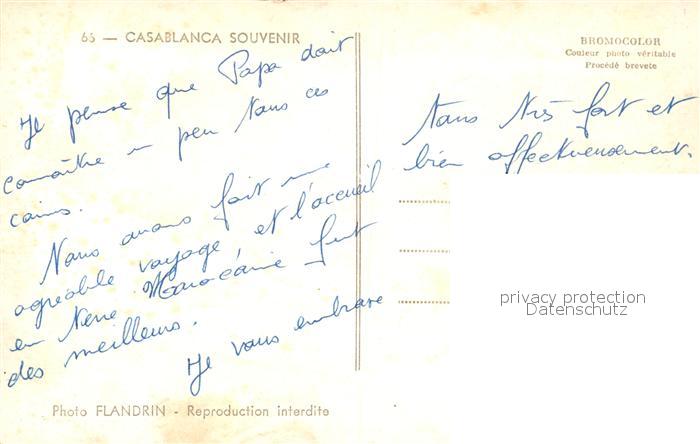 66 — CASABLANCA SOUVENIR
BROMOCOLOR
Couleur photo véritable
Procédé brevete
Je pense que Papa doit
connaître un peu tous ces
coins.
Nous avons fait un
agréable voyage, et l'accueil
en Terre Marocaine fut
des meilleurs.
Je vous embrasse
tous très fort et
bien affectueusement.
privacy protection
Datenschutz
Photo FLANDRIN - Reproduction interdite